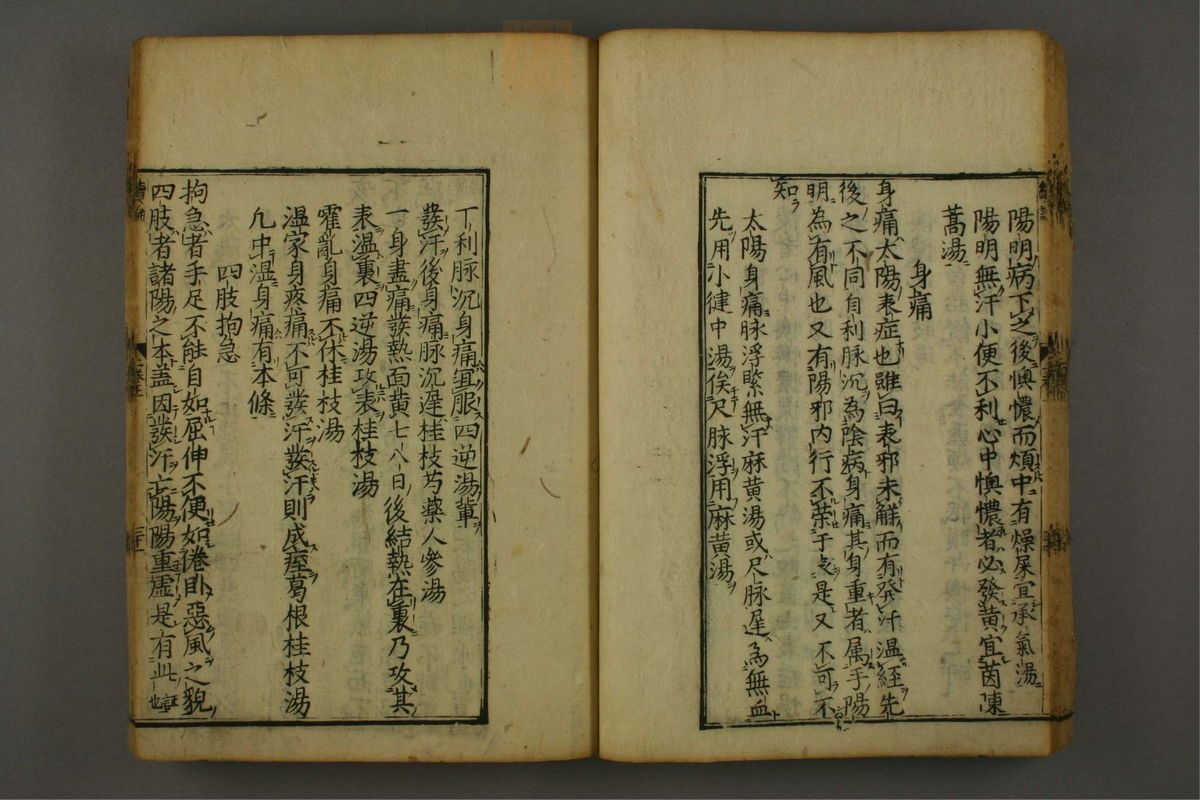 陽明病下之後懊憹而煩中有燥屎宜承氣湯
陽明無汗小便不利心中懊憹者必發黃宜茵陳
蒿湯
身痛
身痛太陽表症也雖曰表邪未觧而有発汗温経先
後之不同自利脉沉為陰病身痛其身重者属手陽
明為有風也又有陽邪内行不荣于之是又不可不
知
太陽身痛脉浮緊無汗麻黄湯或尺脉遲為無血
先用小健中湯俟尺脉浮用麻黄湯
丁利脉沉身痛宜服四逆湯輩
發汗後身痛脉沉遲桂枝芍藥人參湯
一身盡痛發熱面黄七八日後結熱在裏乃攻其
表温裏四逆湯攻表桂枝湯
霍亂身痛不休桂枝湯
温家身疼痛不可發汗發汗則成痙葛根桂枝湯
凢中湿身痛有本條
四肢拘急
拘急者手足不能自如屈伸不便如倦卧惡風之貌
四肢者諸陽之本盖因發汗亡陽陽重虚是有此証也